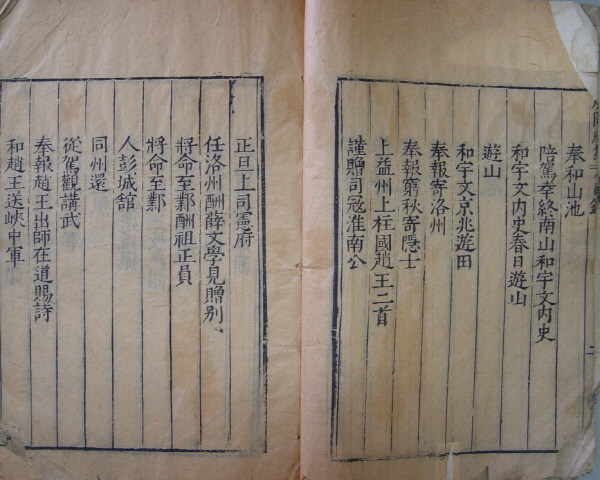 奉和山池
陪駕幸終南山和宇文内史
和宇文内史春日遊山
遊山
和宇文京兆遊田
奉報寄洛州
奉報窮秋寄隱士
上益州上柱國趙王二首
謹贈司冦淮南公
正旦上司憲府
任洛州酬薛文學見贈别
將命至鄴酬祖正員
將命至鄴
人彭城舘
同州還
從駕觀講武
奉報趙王出師在道賜詩
和趙王送峽中軍